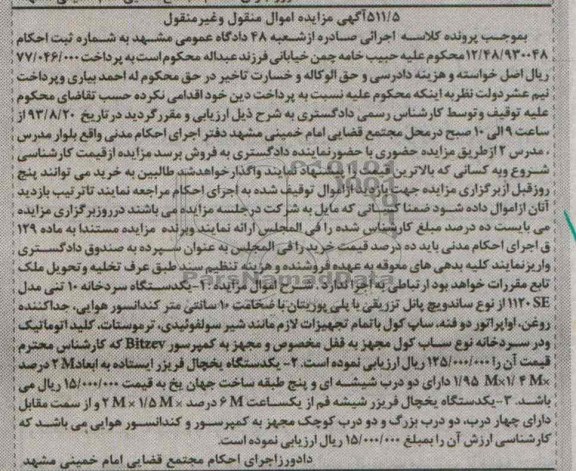 ۵۱۱/۵آگهی مزایده اموال منقول وغیرمنقول
بموجب پرونده کلاسه اجرائی صادره ازشعبه ۴۸ دادگاه عمومی مشهد به شماره ثبت احکام
۱۲/۴۸/۹۳۰۰۴۸محکوم علیه حبیب خامه چمن خیابانی فرزند عبداله محکوم است به پرداخت ۷۷/۰۴۶/۰۰۰
ریال اصل خواسته و هزینه دادرسی و حق الوکاله و خسارت تاخیر در حق محکوم له احمد بیاری وپرداخت
نیم عشر دولت نظر به اینکه محکوم علیه نسبت به پرداخت دین خود اقدامی نکرده حسب تقاضای محکوم
علیه توقیف و توسط کارشناس رسمی دادگستری به شرح ذیل ارزیابی و مقررگردید در تاریخ ۹۳/۸/۲۰ از
ساعت ۹ الی ۱۰ صبح درمحل مجتمع قضایی امام خمینی مشهد دفتر اجرای احکام مدنی واقع بلوار مدرس
، مدرس ۲ ازطریق مزایده حضوری با حضورنماینده دادگستری به فروش برسد مزایده ازقیمت کارشناسی
شروع وبه کسانی که بالاترین قیمت را پیشنهاد نمایند واگذارخواهدشد طالبین به خرید می توانند پنج
روزقبل ازبرگزاری مزایده جهت بازدید ازاموال توقیف شده به اجرای احکام مراجعه نمایند تاترتیب بازدید
آنان ازاموال داده شود ضمنا کسانی که مایل به شرکت درجلسه مزایده می باشند درروزبرگزاری مزایده
می بایست ده درصد مبلغ کارشناس شده را فی المجلس ارائه نمایند وبرنده مزایده مستندا به ماده ۱۲۹
ق اجرای احکام مدنی باید ده درصد قیمت خرید را فی المجلس به عنوان سپرده به صندوق دادگستری
واریزنمایند کلیه بدهی های معوقه به عهده فروشنده و هزینه تنظیم سند طبق عرف تخلیه وتحویل ملک
تابع مقررات خواهد بود ارتباطی به اجرا ندارد. شرح اموال مزایده: ۱- یکدستگاه سردخانه ۱۰ تنی مدل
۱۱۲۰ SE از نوع ساندویچ پانل تزریقی با پلی یوریتان با ضخامت ۱۰سانتی متر کندانسور هوایی، جداکننده
روغن، اواپراتور دو فنه، ساپ کول باتمام تجهیزات لازم مانند شیر سولفوئیدی، ترموستات، کلید اتوماتیک
ودر سردخانه نوع ساب کول مجهز به قفل مخصوص و مجهز به کمپرسور Bitzev که کارشناس محترم
قیمت آن را ۱۲۵/۰۰۰/۰۰۰ ریال ارزیابی نموده است. ۲- یکدستگاه یخچال فریزر ایستاده به ابعاد۲M درصد
۱/۹۵ M×۱/۴M× دارای دو درب شیشه ای و پنج طبقه ساخت جهان یخ به قیمت ۱۵/۰۰۰/۰۰۰ ریال می
باشد. ۳-یکدستگاه یخچال فریزر شیشه فم از یکساعت ۶M درصد ۲M×۱/۵M× و از سمت مقابل
دارای چهار درب، دو درب بزرگ و دو درب کوچک مجهز به کمپرسور و کندانسور هوایی می باشد که
کارشناسی ارزش آن را بمبلغ ۱۵/۰۰۰/۰۰۰ ریال ارزیابی نموده است.
دادورزاجرای احکام مجتمع قضایی امام خمینی مشهد